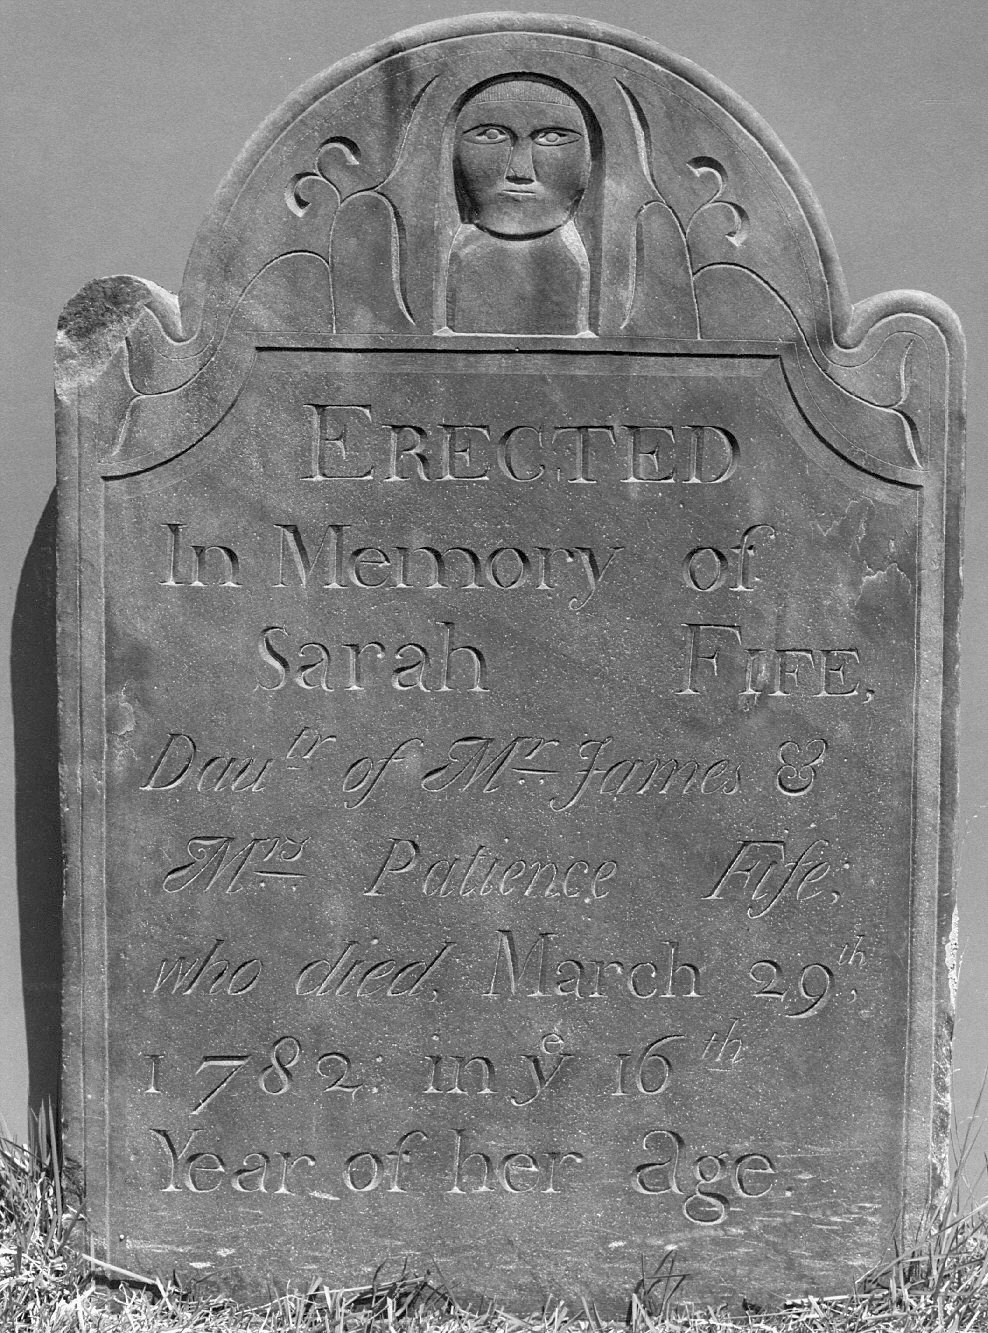 ERECTED
In Memory of
Sarah FIFE,
Dauᵗʳ of Mʳ James &
Mʳˢ Patience Fife;
who died, March 29ᵗʰ,
1782; in yᵉ 16ᵗʰ
Year of her age.